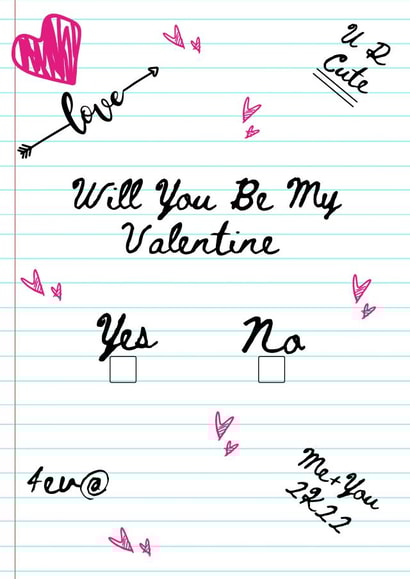 U R
Cute
love
Will You Be My
Valentine
Yes No
4ev@
Me+You
2K22